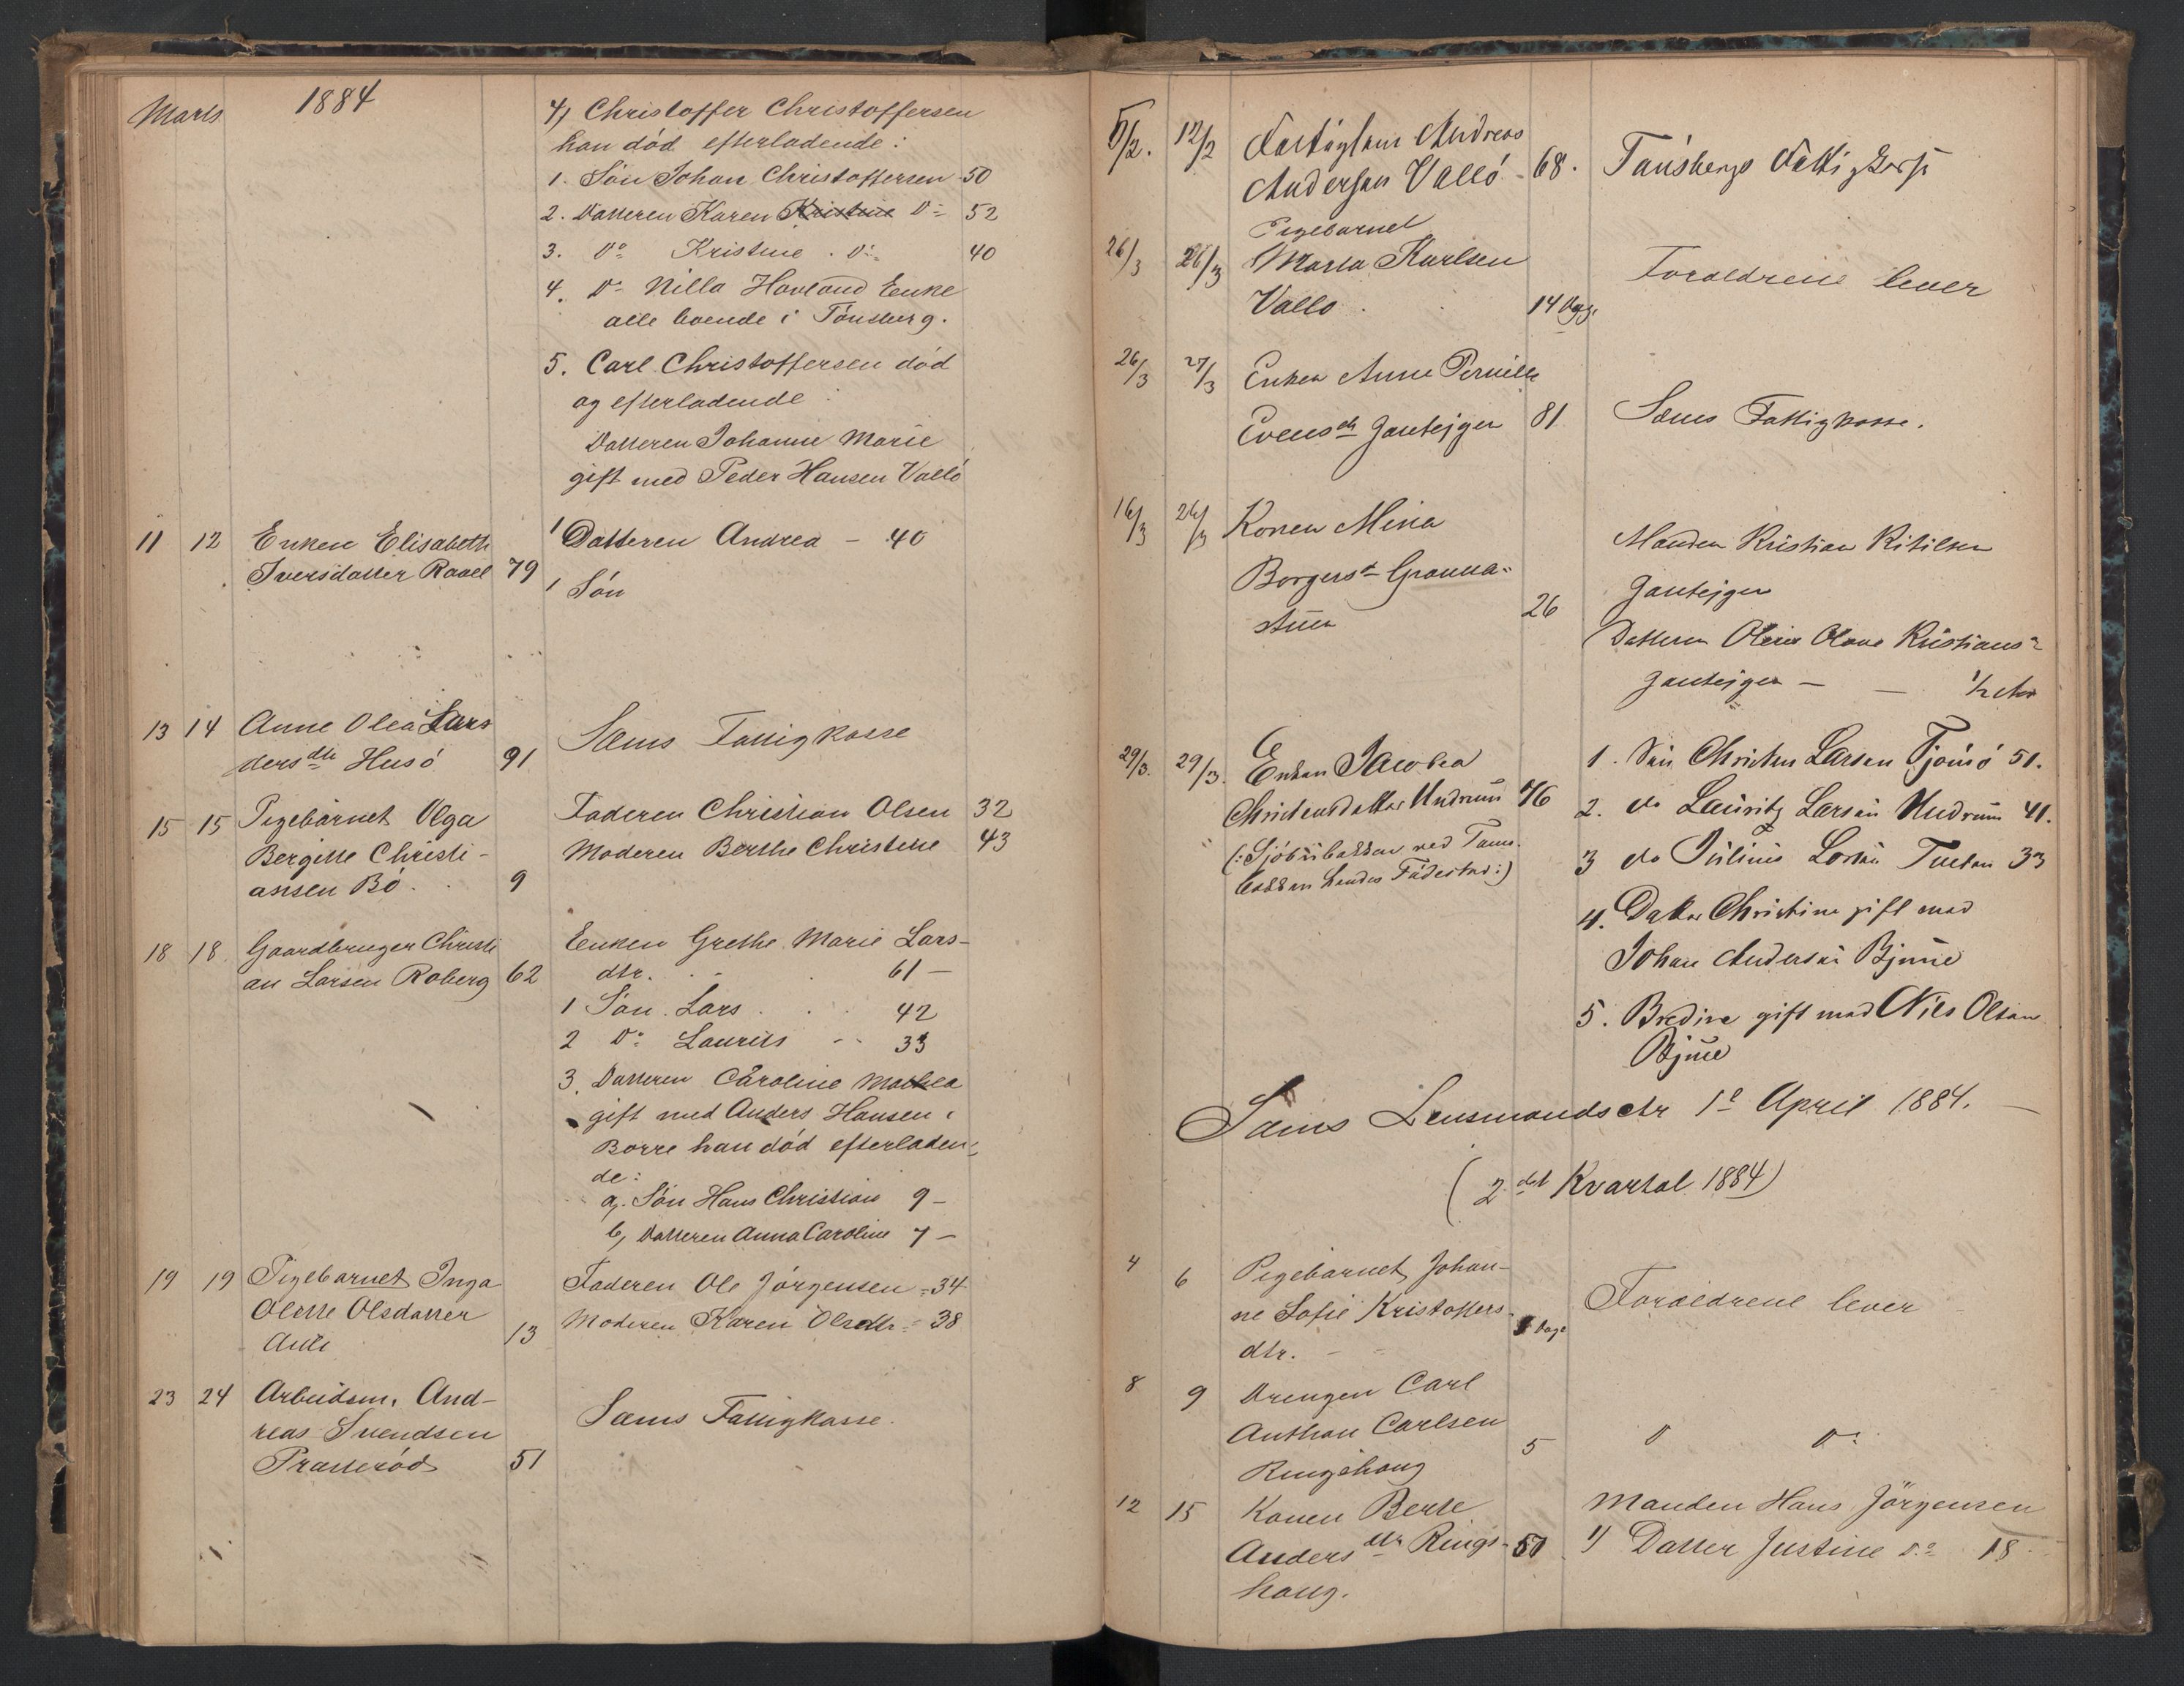 Marts 1884
4, Christoffer Christoffersen
han død efterladende:
1. Søn Johan Christoffersen - 50
2. Datteren Karen Kristine Do 52
3. Do Kristine . Do 40
4. Do Nilla Havland Enke
alle boende i Tønsberg.
5. Carl Christoffersen død
og efterladende:
Datteren Johanne Marie
gift med Peder Hansen Vallø
11 12 Enken Elisabeth
Iversdatter Raael 79
1 Datteren Andrea - 40
1 Søn
13 14 Anne Olea Lars
ders dtr Husø 91
Sæms Fattigkasse
15 15 Pigebarnet Olga
Bergitte Christi-
ansen Bø. 9
Faderen Christian Olsen 32
Moderen Berthe Christine 43
18 18 Gaardbruger Christi
an Larsen Roberg 62
Enken Grethe Marie Lars-
dtr. 61 -
1 Søn Lars 42
2 Do Laurits 33
3. Datteren Caroline Mathea
gift med Anders Hansen i
Borre han død efterladen-
de:
a, Søn Hans Christian 9 -
b, Datteren Anna Caroline 7 -
19 19 Pigebarnet Inga
Olette Olsdatter
Auli 13
Faderen Ole Jørgensen - 34
Moderen Karen Olsdtr - 38
23 24 Arbeidsm. And-
reas Svendsen
Præsterød 51
Sæms Fattigkasse.
5/2. 12/2 Andreas
Andersen Vallø - 68. Tønsbergs
Pigebarnet
26/3 26/3 Marta Karlsen
Vallø 14 Dage
Foraldrene lever
26/3 27/3 Enken Anne Pernille
Evensdtr Jarteiger 81 Sæms Fattigkasse.
16/3 26/3 Konen Mina
Borgersdt
26
Manden Kristian Kitilsen
Datteren Kristians
1/2 Aar
29/3. 29/3. Enken Jacobea
Christensdatter Undrum 76
1. Søn Christen Larsen Tjømø 51.
2. do Lauritz Larsen Undrum 41.
3 do Julius Larsen 33
4. Datter Christine gift med
Johan Andersen Bjune
5. Bredine gift med Nils Olsen
Bjune
Sæms Lensmandsetr 1e April 1884.
(2det Kvartal 1884)
4 6 Pigebarnet Johan-
ne Sofie Kristoffers-
dtr. Dage
Foraldrene lever
8 9 Drengen Carl
Anthon Carlsen
Ringshaug 5
D Do
12 15 Konen Berte
Anders dtr Rings- 50
haug.
Manden Hans Jørgensen
1) Datter Justine Do 18